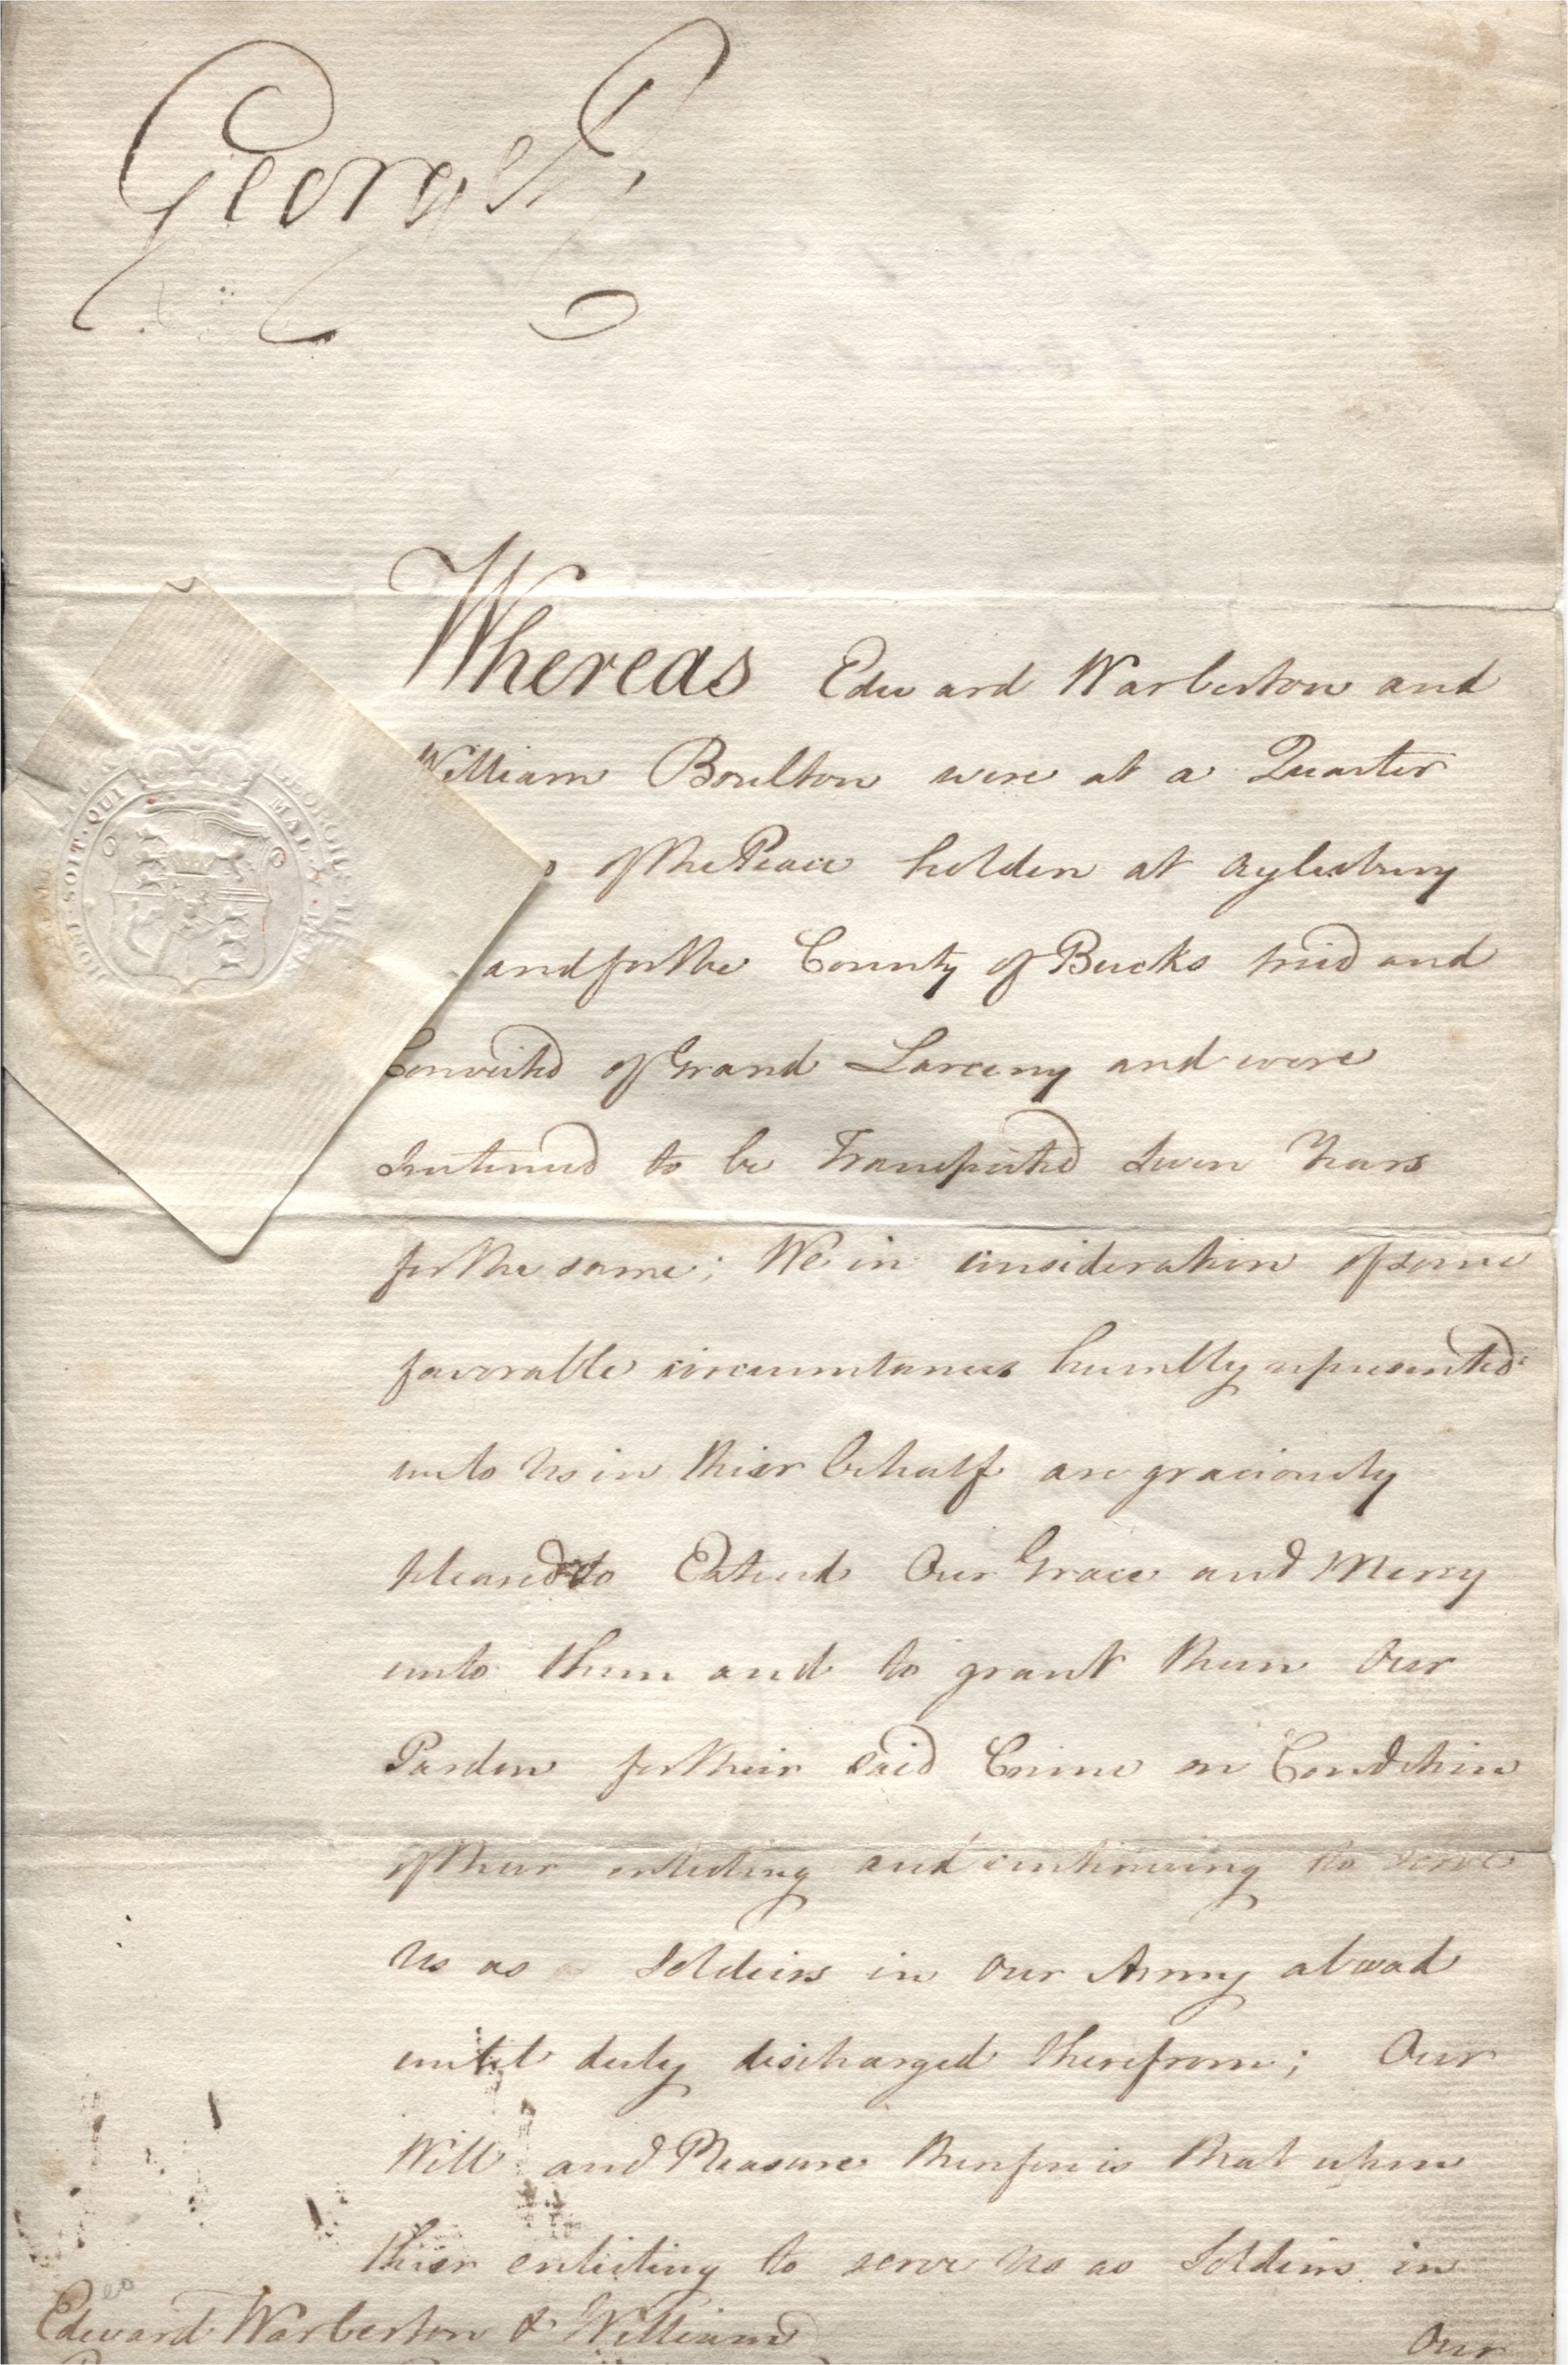 George R
Whereas Edward Warberton and
William Boulton were at a Quarter
of the Peace holden at Aylesbury
and for the County of Bucks tried and
Convicted of Grand Larceny and were
Sentenced to be Transported Seven Years
for the same; We in consideration of some
favorable circumstances humbly represented
unto Us in thier behalf are graciously
pleased to Extend Our Grace and Mercy
unto them and to grant them Our
Pardon for their said Crime on Condition
of their enlisting and continuing to serve
Us as Soldiers in Our Army abroad
until duly discharged therefrom; Our
Will and Pleasure therefore is that upon
thier enlisting to serve Us as Soldiers in
Edward Warberton & William
Our
HONI·SOIT·QUI MAL·Y·PENSE